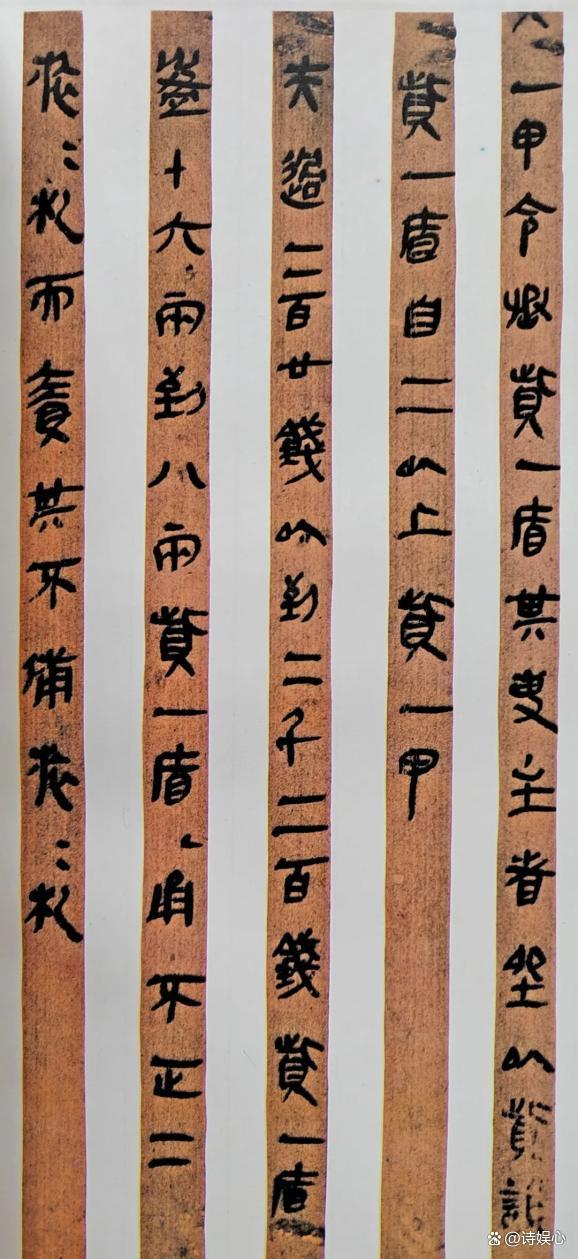 一甲令丞貲一盾其吏主者坐以貲誶
貲一盾自二以上貲一甲
夫過二百廿錢以到二千二百錢貲一盾
盈十六兩到八兩貲一盾甬不正二
旅=札而責其不備旅=札
@诗娱心